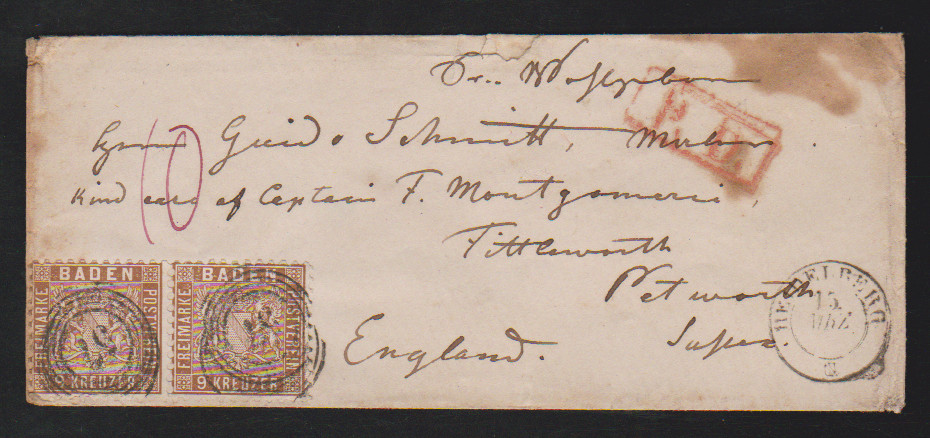 Guido Schmitt, Maler.
Kind care of Captain F. Montgomerie,
Tittleworth
Petworth
Sussex.
England.
10
P.D.
BADEN
FREIMARKE
POSTVEREIN
9 KREUZER
BADEN
FREIMARKE
9 KREUZER
HEIDELBERG
15.
MRZ.